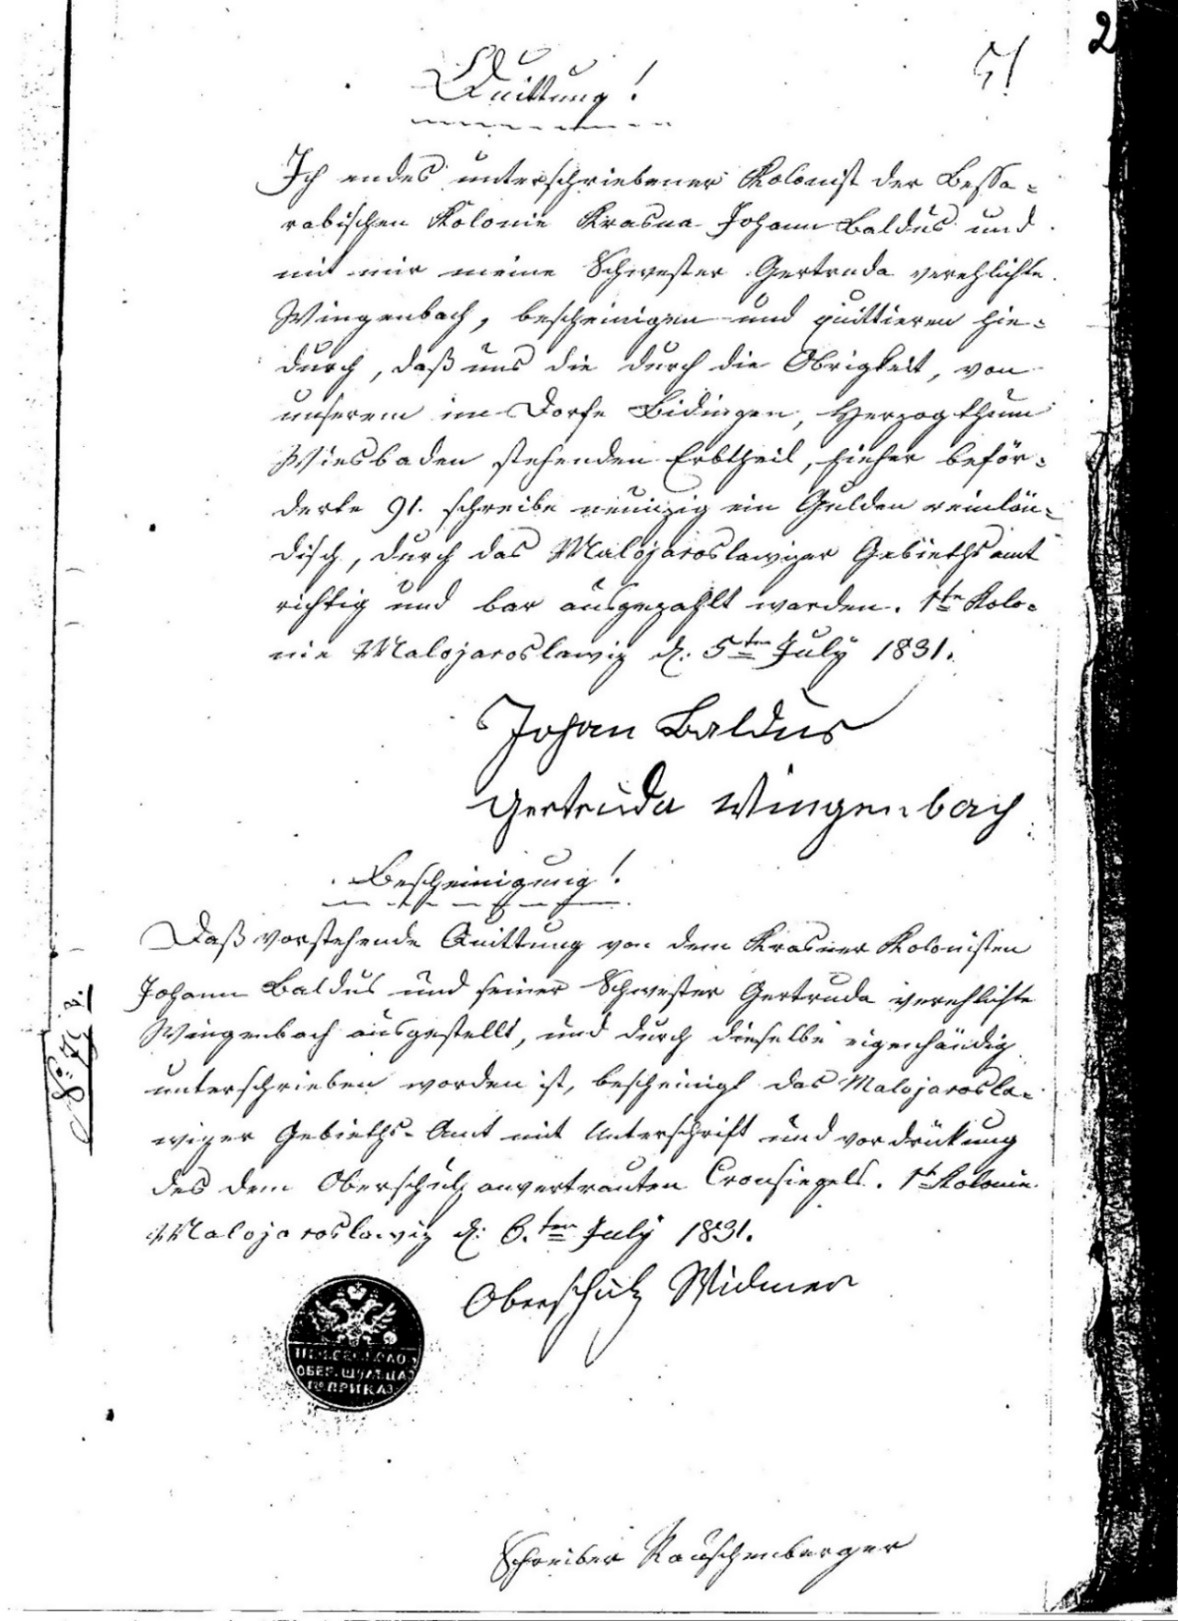 2
51
Quittung!
Ich endes unterschriebener Kolonist der Bessa=
rabischen Kolonie Krasna Johann Baldus und
mit mir meine Schwester Gertruda verehlichte
Wingenbach, bescheinigen und quittieren hie=
durch, daß uns die durch die Obrigkeit, von
unserem im Dorfe Bidingen, Herzogthum
Wiesbaden stehenden Erbtheil, hieher beför=
derte 91. schreibe neunzig ein Gulden reinlän=
disch, durch das Malojaroslawizer Gebiethsamt
richtig und bar ausgezahlt worden. 1te Kolo=
nie Malojaroslawiz d: 5ten July 1831.
Johan Baldus
Gertruda Wingenbach
Bescheinigung!
Daß vorstehende Quittung von dem Krasner Kolonisten
Johann Baldus und seiner Schwester Gertruda verehlichte
Wingenbach ausgestellt, und durch dieselbe eigenhändig
unterschrieben worden ist, bescheinigt das Malojarosla=
wizer Gebieths=Amt mit Unterschrift und vordrückung
des dem Oberschulz anvertrauten Cronsiegels. 1te Kolonie
Malojaroslawiz d: 6.ten July 1831.
Oberschulz Widmer
ОБЕР. ШУЛЬЦА
ПРИКАЗ
Schreiber Rauschenberger